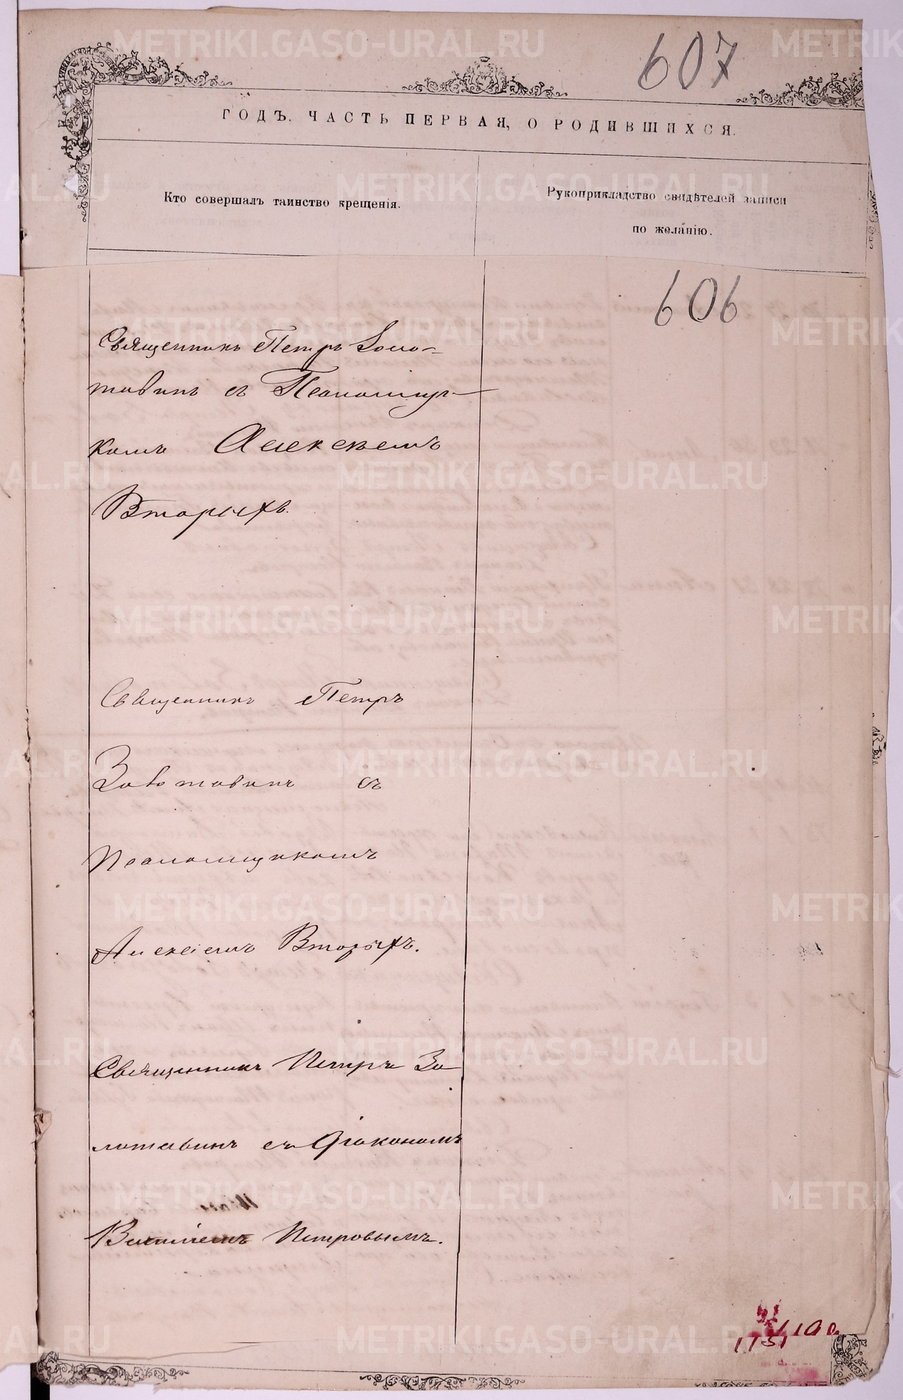 607
ГОДЪ. ЧАСТЬ ПЕРВАЯ, О РОДИВШИХСЯ.
Кто совершалъ таинство крещенія.
Рукоприкладство свидѣтелей записи
по желанію.
606
Священникъ Петръ Золо-
тавинъ съ Псаломщи-
комъ Алексѣемъ
Вторыхъ.
Священникъ Петръ
Золотавинъ съ
Псаломщикомъ
Алексіемъ Вторыхъ.
Священникъ Петръ Зо-
лотавинъ съ Діакономъ
Петровымъ.
METRIKI.GASO-URAL.RU